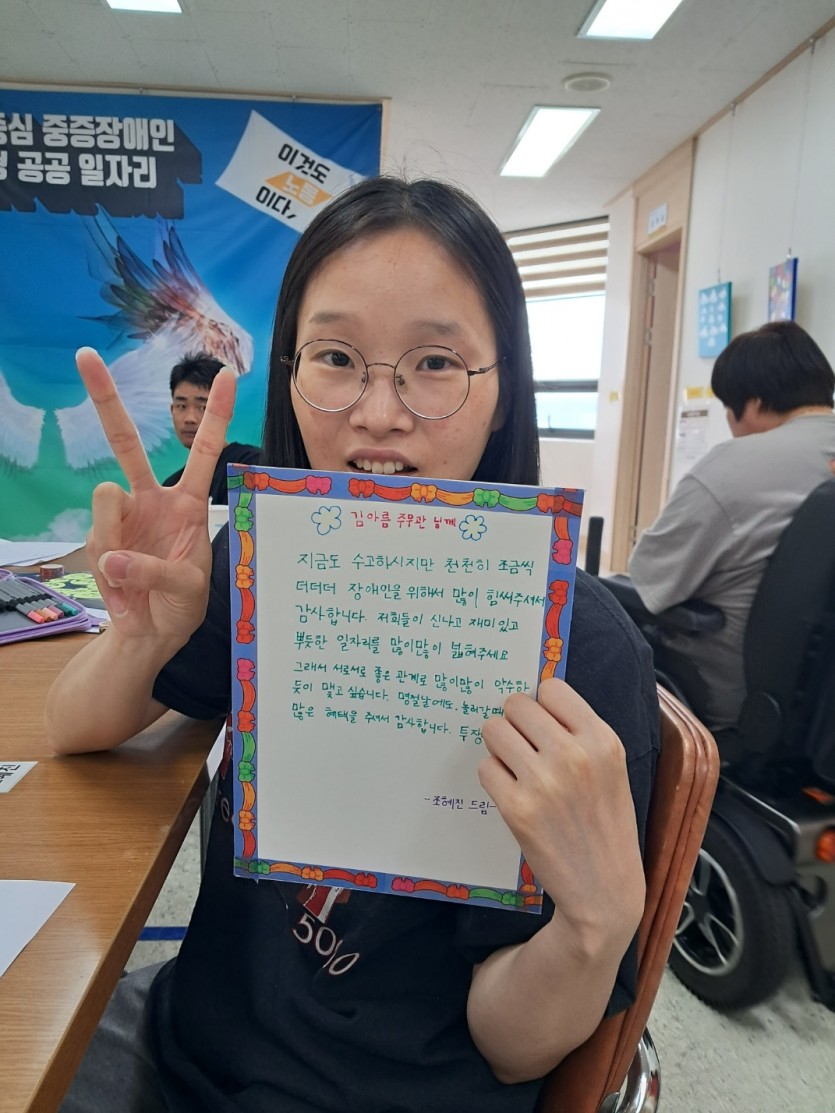 중심 중증장애인
공공 일자리
이것도
노동
이다
김아름 주무관 님께
지금도 수고하시지만 천천히 조금씩
더더더 장애인을 위해서 많이 힘써주셔서
감사합니다. 저희들이 신나고 재미있고
뿌듯한 일자리를 많이많이 넓혀주세요
그래서 서로서로 좋은 관계로 많이많이 악수하
듯이 맺고 싶습니다. 명절날에도. 놀러갈때
많은 혜택을 주셔서 감사합니다. 투쟁
-조혜진 드림-
50